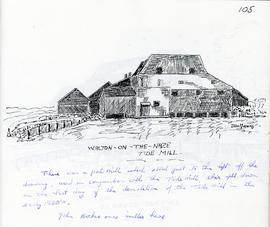 105.
WALTON-ON-THE-NAZE
TIDE MILL.
There was a post Mill which stood just to the left off the
drawing, used in conjunction with the Tide Mill. It fell down
on the first day of the demolition of the Tide Mill in the
early 1920's.
John Barker was miller here